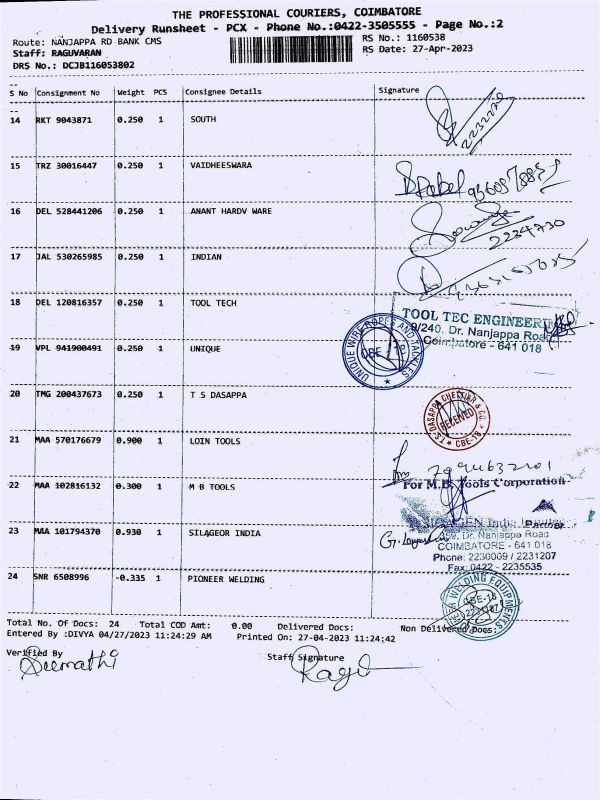 THE PROFESSIONAL COURIERS, COIMBATORE
Delivery Runsheet - PCX - Phone No.:0422-3505555 - Page No.:2
Route: NANJAPPA RD BANK CMS RS No.: 1160538
Staff: RAGUVARAN RS Date: 27-Apr-2023
DRS No.: DCJB116053802
S No Consignment No Weight PCS Consignee Details Signature
14 RKT 9043871 0.250 1 SOUTH
2232270
15 TRZ 30016447 0.250 1 VAIDHEESWARA
16 DEL 528441206 0.250 1 ANANT HARDV WARE
2234730
17 JAL 530265985 0.250 1 INDIAN
18 DEL 120816357 0.250 1 TOOL TECH
TOOL TEC ENGINEER
9/240, Dr. Nanjappa Road
Coimbatore - 641 018
19 VPL 941900491 0.250 1 UNIQUE
UNIQUE WIRE ROPES AND TACKLES
CBE - 18
20 TMG 200437673 0.250 1 T S DASAPPA
T.S. DASAPPA CHETTIAR & CO.
RECEIVED
CBE-18
21 MAA 570176679 0.900 1 LOIN TOOLS
22 MAA 102816132 0.300 1 M B TOOLS
For M.B. Tools Corporation
Partner
23 MAA 101794370 0.930 1 SILAGEOR INDIA
Dr. Nanjappa Road
COIMBATORE - 641 018
Phone: 2230009 / 2231207
Fax: 0422 - 2235535
24 SNR 6508996 -0.335 1 PIONEER WELDING
WELDING EQUIPMENTS
CBE-18
Total No. Of Docs: 24 Total COD Amt: 0.00 Delivered Docs: Non Delivered Docs:
Entered By :DIVYA 04/27/2023 11:24:29 AM Printed On: 27-04-2023 11:24:42
Verified By Staff Signature